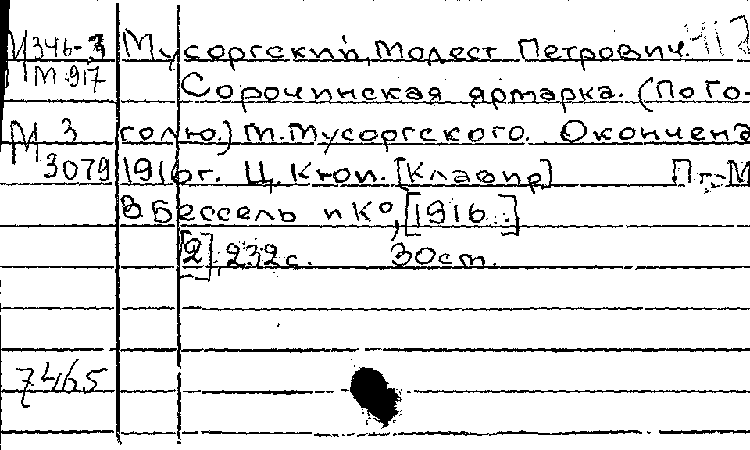 М 346-3 Мусоргский, Модест Петрович. 417
М 917 Сорочинская ярмарка. (По Го-
М 3 голю.) М. Мусоргского. Окончена
3079 1916г. Ц. Кюи. [Клавир] Пг.-М
В Бессель и Кº, [1916.]
[2], 232с. 30см.
7465